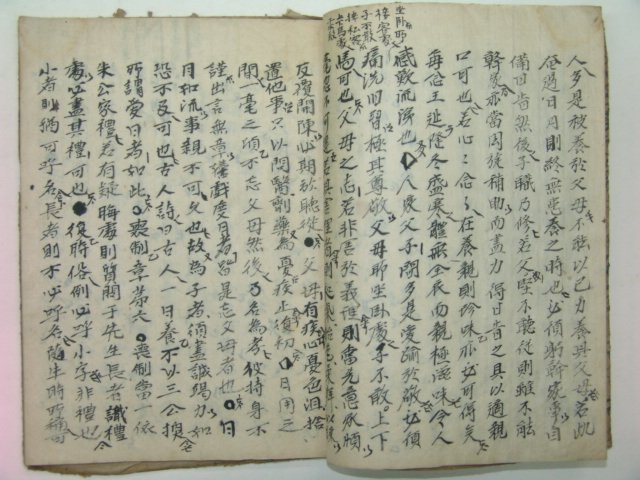 坐卧所
接客處
子不敢
接私客
上下馬處
人多是被養於父母不能以己力養其父母若此
奄過日月則終無忠養之時也必須躬幹家事自
備甘旨然後子職乃修若父母堅不聽從則雖不能
幹家亦當周旋補助而盡力得甘旨之具以適親
口可也若心心念念在養親則珍味亦必可得矣
每念王延隆冬盛寒體無全衣而親極滋味令人
感歎流涕也人家父子間多是愛踰於敬必須
痛洗旧習極其尊敬父母所坐臥處子不敢上下
馬可也父母之志若非害於義理則當先意承順
反覆開陳必期於聽從父母有疾心憂色沮捨
置他事只以問醫劑藥爲憂疾止復初日用之
間一毫之頃不忘父母然後乃名爲孝彼持身不
謹出言無章嬉戲度日者皆是忘父母者也日
月如流事親不可久也故爲子者須盡誠竭力如
恐不及可也古人詩曰古人一日養不以三公換
所謂愛日者如此喪制章第六喪制當一依
朱公家禮若有疑晦處則質問于先生長者識禮
處必盡其禮可也復時俗例必呼小字非禮也
小者則猶可呼名長者則不必呼名隨生時所稱